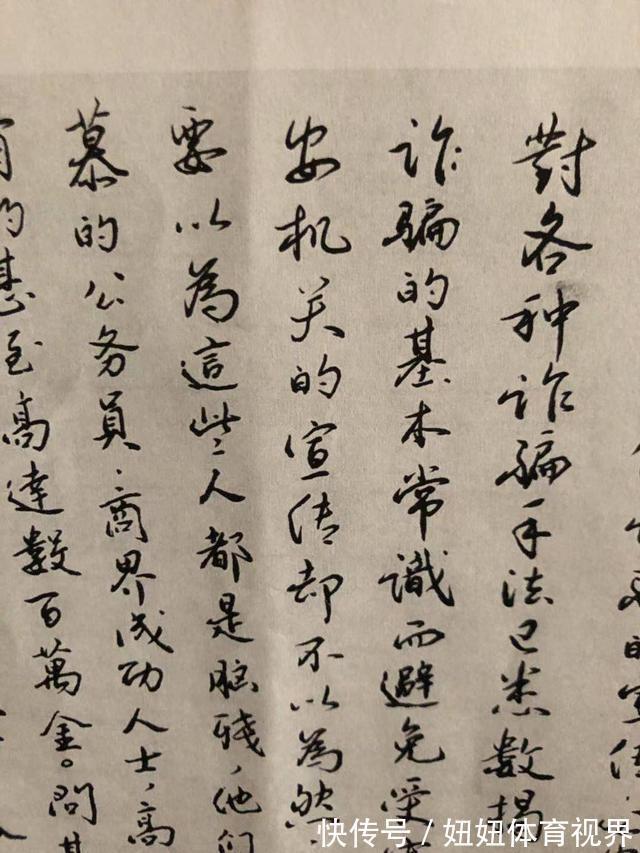 的宣传
對各种诈骗手法已悉数揭
诈骗的基本常識而避免受
安机关的宣传却不以為然
要以為這些人都是脑残，他们
慕的公务員、商界成功人士，高
的甚至高達数百萬金。問其
快传号／妞妞体育视界